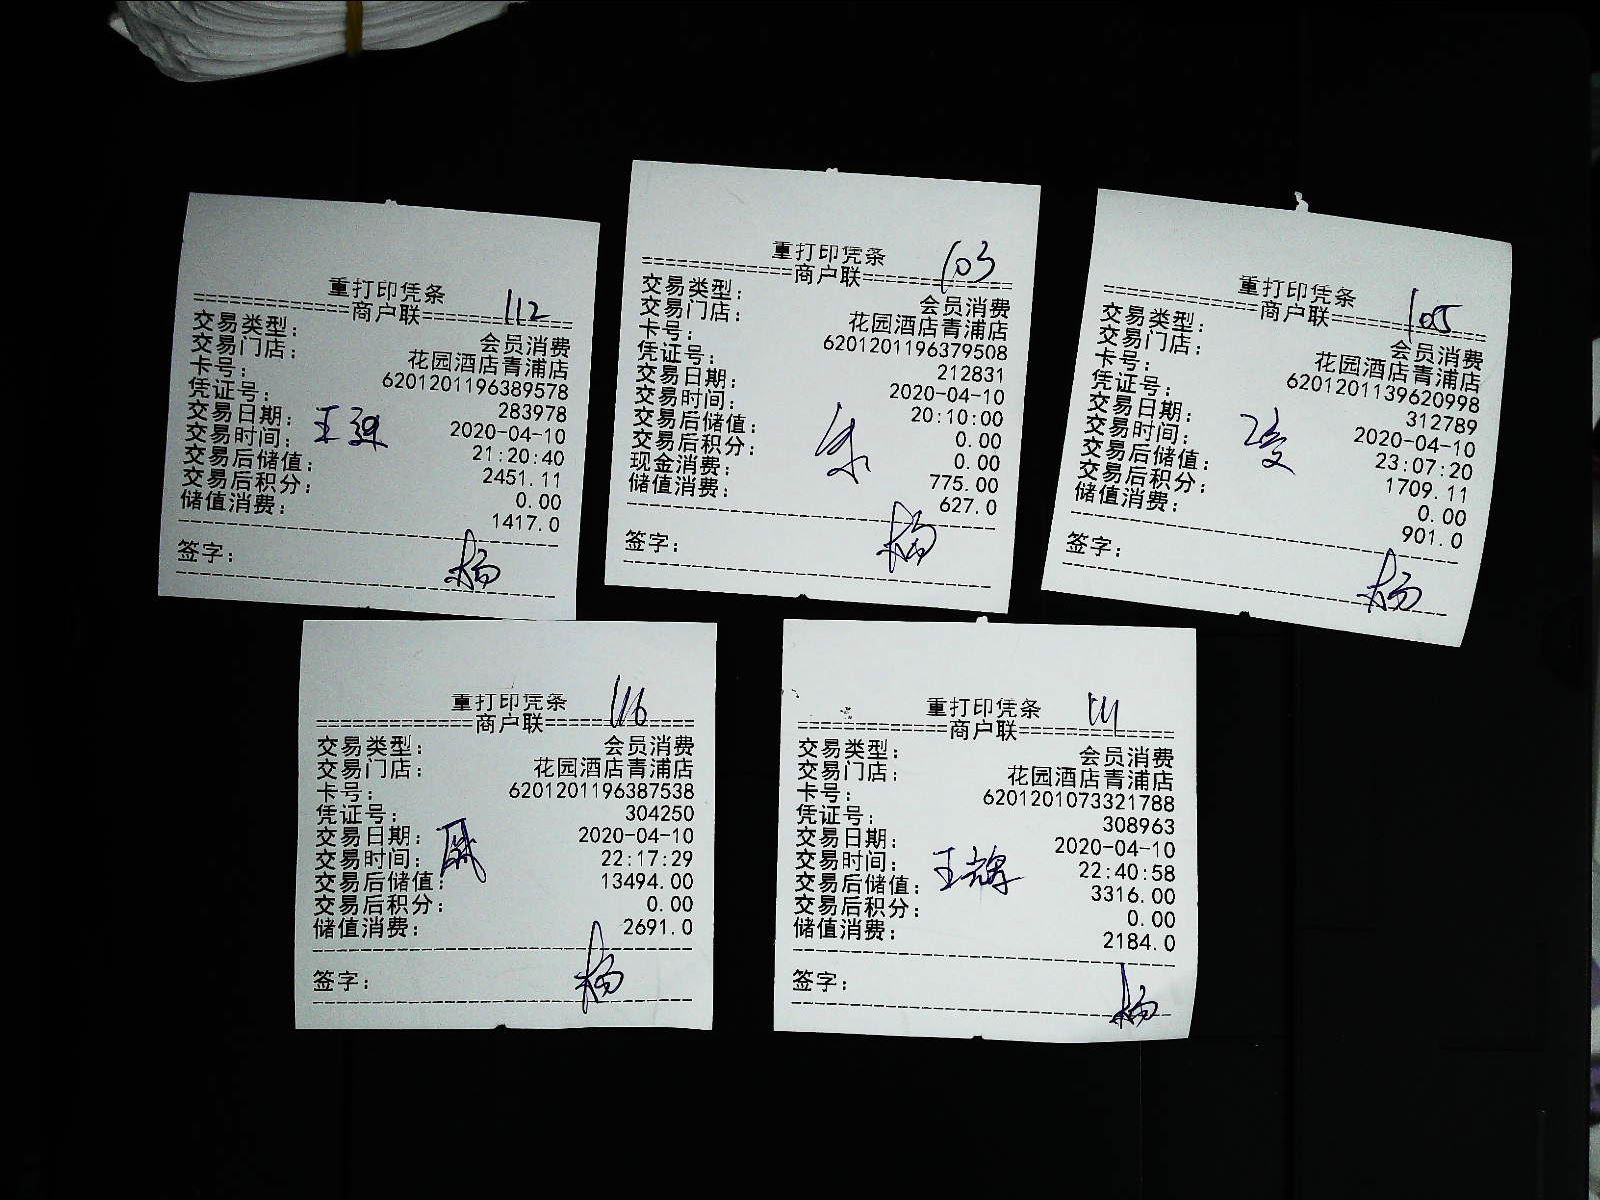 重打印凭条
112
==============商户联==============
交易类型： 会员消费
交易门店： 花园酒店青浦店
卡号： 6201201196389578
凭证号： 283978
交易日期： 2020-04-10
交易时间： 21:20:40
交易后储值： 2451.11
交易后积分： 0.00
储值消费： 1417.0
签字：
杨
重打印凭条
103
==============商户联==============
交易类型： 会员消费
交易门店： 花园酒店青浦店
卡号： 6201201196379508
凭证号： 212831
交易日期： 2020-04-10
交易时间： 20:10:00
交易后储值： 0.00
交易后积分： 0.00
现金消费： 775.00
储值消费： 627.0
朱
签字：
杨
重打印凭条
105
==============商户联==============
交易类型： 会员消费
交易门店： 花园酒店青浦店
卡号： 6201201139620998
凭证号： 312789
交易日期： 2020-04-10
交易时间： 23:07:20
交易后储值： 1709.11
交易后积分： 0.00
储值消费： 901.0
签字：
杨
重打印凭条
116
==============商户联==============
交易类型： 会员消费
交易门店： 花园酒店青浦店
卡号： 6201201196387538
凭证号： 304250
交易日期： 2020-04-10
交易时间： 22:17:29
交易后储值： 13494.00
交易后积分： 0.00
储值消费： 2691.0
签字：
杨
重打印凭条
111
==============商户联==============
交易类型： 会员消费
交易门店： 花园酒店青浦店
卡号： 6201201073321788
凭证号： 308963
交易日期： 2020-04-10
交易时间： 22:40:58
王辉
交易后储值： 3316.00
交易后积分： 0.00
储值消费： 2184.0
签字：
杨